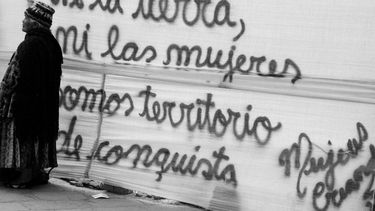 ni la tierra,
ni las mujeres
somos territorio
de conquista
Mujeres
Creando